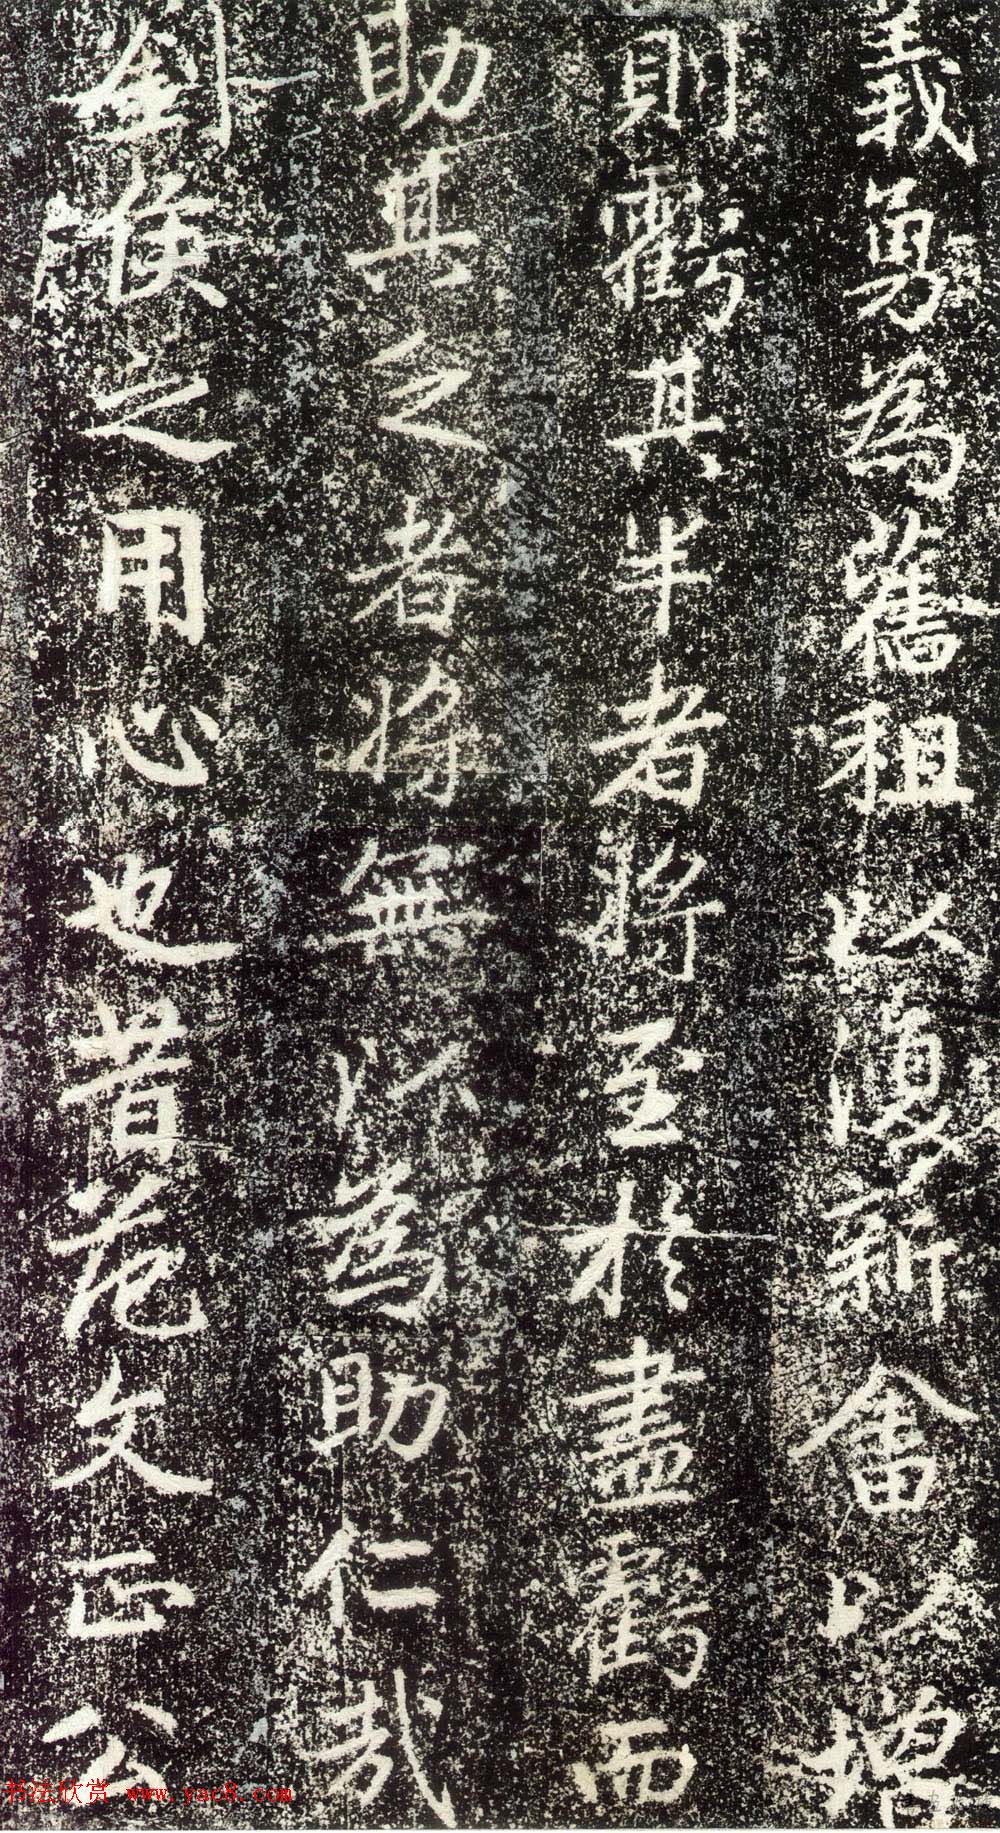 義勇為舊租以復新畬以增
則虧其半者將至於盡虧而
助其之者將無以為助仁哉
劉侯之用心也昔范文正公
书法欣赏 www.yac8.com